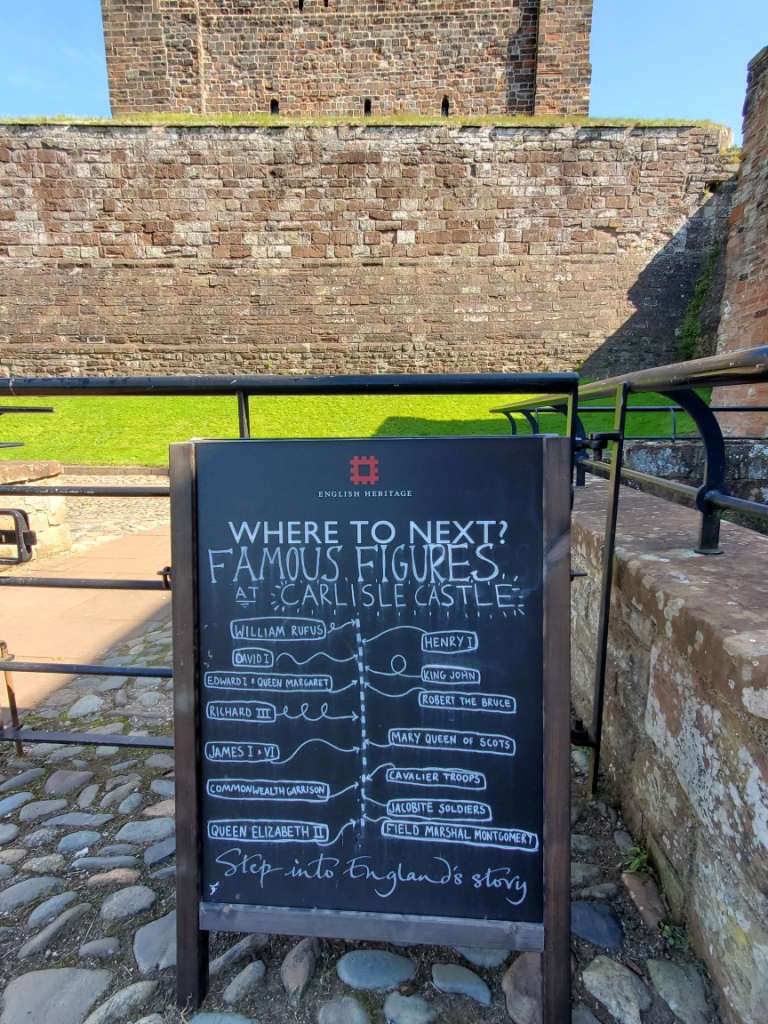 ENGLISH HERITAGE
WHERE TO NEXT?
FAMOUS FIGURES
AT CARLISLE CASTLE
WILLIAM RUFUS
HENRY I
DAVID I
KING JOHN
EDWARD I & QUEEN MARGARET
ROBERT THE BRUCE
RICHARD III
MARY QUEEN OF SCOTS
JAMES I & VI
CAVALIER TROOPS
COMMONWEALTH GARRISON
JACOBITE SOLDIERS
QUEEN ELIZABETH II
FIELD MARSHAL MONTGOMERY
Step into England's story